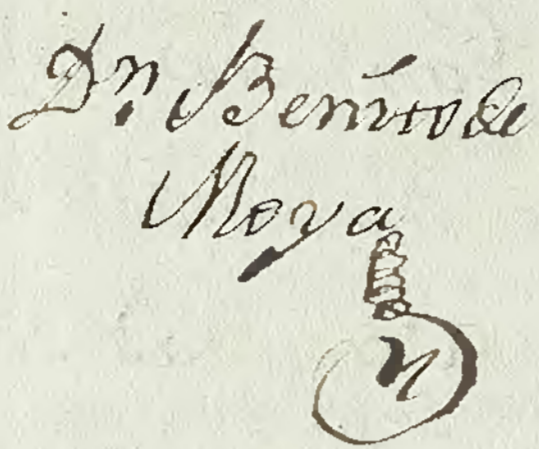 Dn Benito de
Moya